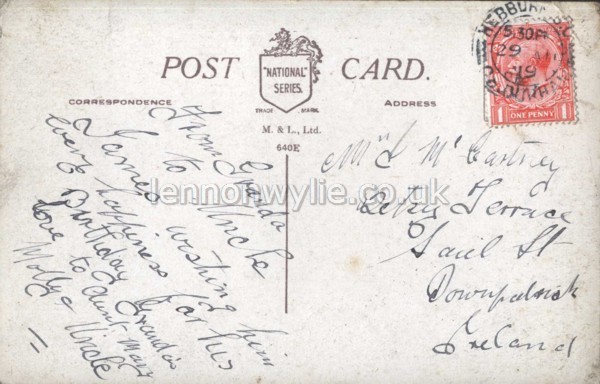 POST CARD.
"NATIONAL"
SERIES.
TRADE MARK
CORRESPONDENCE
ADDRESS
M. & L., Ltd.
640E
HEBBURN
5.30 PM
29
19
ONE PENNY
1 1
From Granda
to Uncle
James wishing him
every happiness for his
Birthday Granda's
love to Aunt Mary
Mollye Uncle
Mc Cartney
Terrace
St
Downpatrick
Ireland
lennonwylie.co.uk